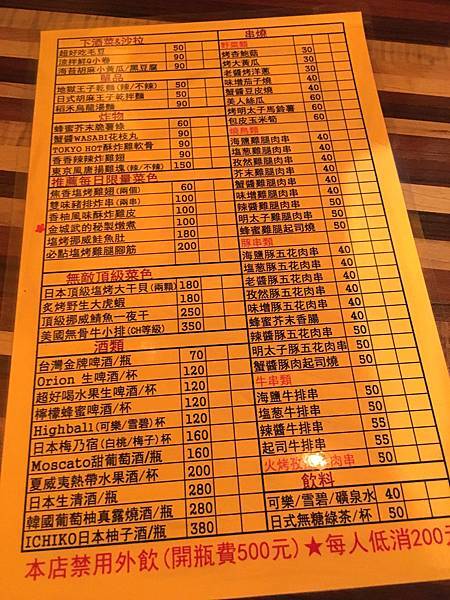 下酒菜&沙拉
超好吃毛豆 50
涼拌鮮Q小卷 90
海苔胡麻小黃瓜/黑豆腐 90
單品
地獄王子乾麵(辣/不辣) 50
日式胡麻王子乾拌麵 50
稻禾烏龍湯麵 90
炸物
蜂蜜芥末脆薯條 60
蟹醬WASABI花枝丸 90
TOKYO HOT酥炸雞軟骨 90
香香辣辣炸雞翅 90
東京風唐揚雞塊(辣/不辣) 150
推薦每日限量菜色
焦香塩烤雞翅(兩個) 60
雙味豬排炸串(兩串) 100
香柚風味酥炸雞皮 100
金城武的秘製燉煮 100
塩烤挪威鮭魚肚 180
必點塩烤雞腿腳筋 200
無敵頂級菜色
日本頂級塩烤大干貝(兩顆) 180
炙烤野生大虎蝦 180
頂級挪威鯖魚一夜干 250
美國無骨牛小排(CH等級) 350
酒類
台灣金牌啤酒/瓶 70
Orion 生啤酒/杯 120
超好喝水果生啤酒/杯 120
檸檬蜂蜜啤酒/杯 120
Highball(可樂/雪碧)杯 120
日本梅乃宿(白桃/梅子)杯 160
Moscato甜葡萄酒/瓶 160
夏威夷熱帶水果酒/杯 200
日本生清酒/瓶 280
韓國葡萄柚真露燒酒/瓶 280
ICHIKO日本柚子酒/瓶 380
串燒
野菜類
烤杏鮑菇 30
烤大黃瓜 30
老醬烤洋蔥 30
味增茄子燒 30
蟹醬豆皮燒 40
美人絲瓜 60
烤明太子馬鈴薯 60
包皮玉米筍 60
燒鳥類
海鹽雞腿肉串 40
塩蔥雞腿肉串 40
孜然雞腿肉串 40
芥末雞腿肉串 40
蟹醬雞腿肉串 40
味增雞腿肉串 40
辣醬雞腿肉串 40
明太子雞腿肉串 50
蜂蜜雞腿起司燒 50
豚串類
海鹽豚五花肉串 40
塩蔥豚五花肉串 40
老醬豚五花肉串 40
孜然豚五花肉串 40
味增豚五花肉串 40
蜂蜜芥末香腸 40
辣醬豚五花肉串 40
明太子豚五花肉串 50
蟹醬豚肉起司燒 50
牛串類
海鹽牛排串 50
塩蔥牛排串 50
辣醬牛排串 55
起司牛排串 55
火烤孜 肉串 50
飲料
可樂/雪碧/礦泉水 40
日式無糖綠茶/杯 50
本店禁用外飲(開瓶費500元)★每人低消200元